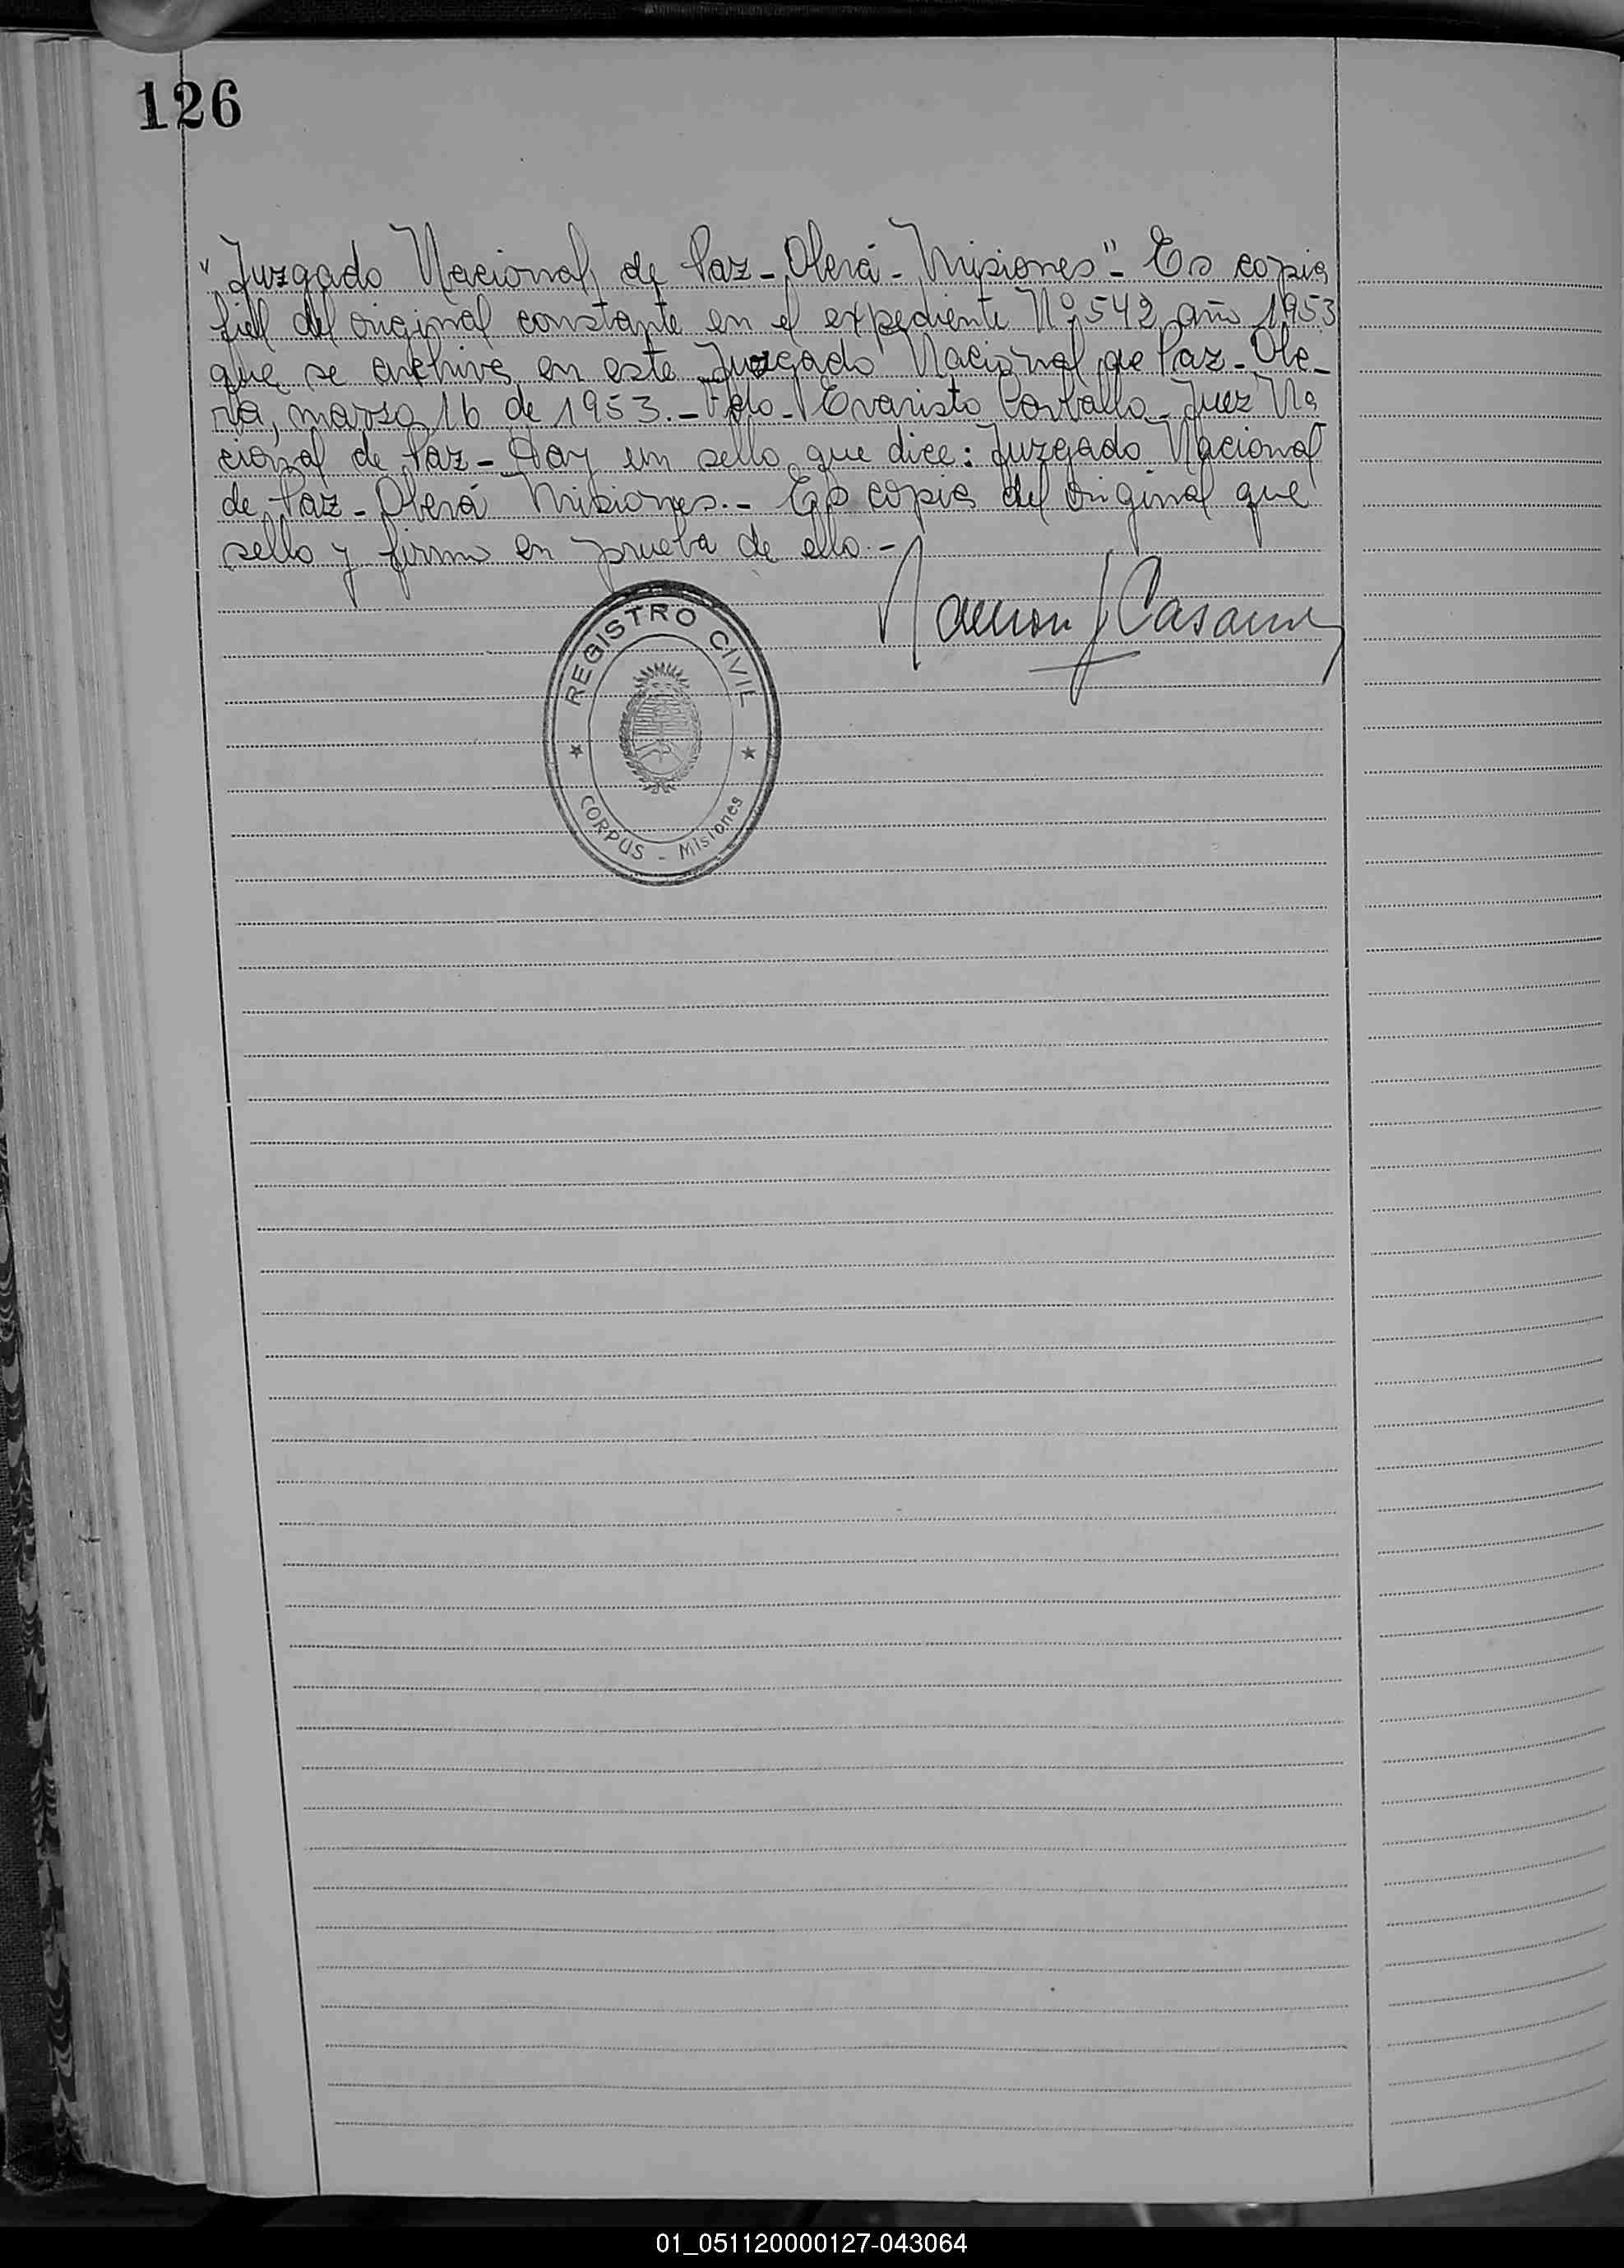 126
"Juzgado Nacional de Paz - Oberá - Misiones" - Es copia
fiel del original constante en el expediente Nº 542 año 1953
que se archiva en este Juzgado Nacional de Paz - Obe-
rá, marzo 16 de 1953. - Fdo - Evaristo Carballo - Juez Na
cional de Paz - Hay un sello que dice: Juzgado Nacional
de Paz - Oberá Misiones. - Es copia del original que
sello y firmo en prueba de ello. -
Ramon J
REGISTRO CIVIL
CORPUS - Misiones
01_051120000127-043064